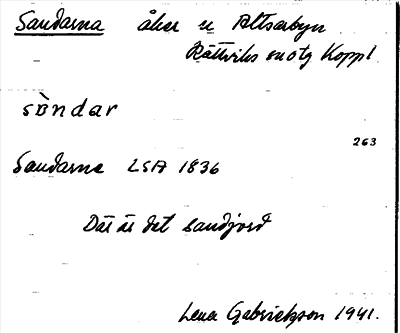 Sandarna åker n Altsarbyn
Rättviks sn otg Koppl
sòndar
263
Sandarna LSA 1836
Där är det sandjord
Lena Gabrielsson 1941.